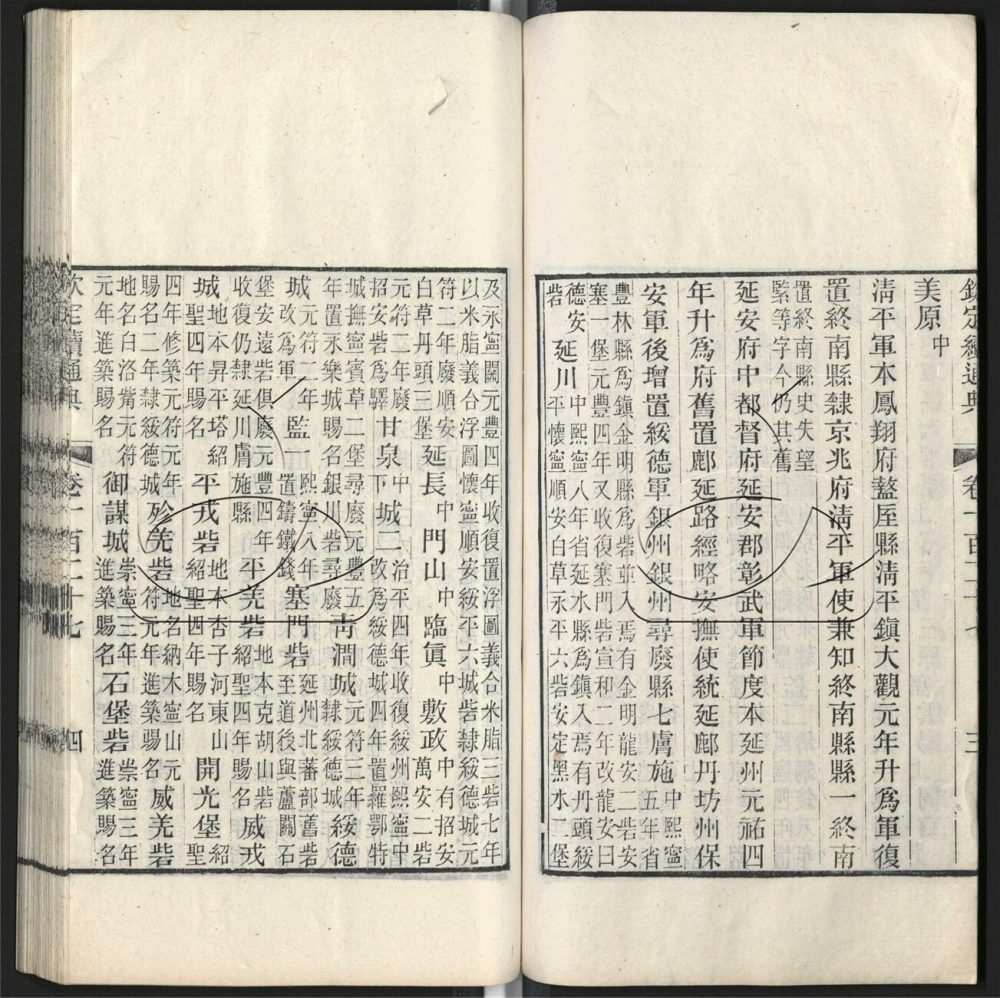 欽定續通典 卷一百二十七 三
美原中
清平軍本鳳翔府盩厔縣清平鎮大觀元年升爲軍復
置終南縣隸京兆府清平軍使兼知終南縣縣一終南
置終南縣史失望
緊等字今仍其舊
延安府中都督府延安郡彰武軍節度本延州元祐四
年升爲府舊置鄜延路經略安撫使統延鄜丹坊州保
安軍後增置綏德軍銀州銀州尋廢縣七膚施中熙寧五年省
豐林縣爲鎮金明縣爲砦並入焉有金明龍安二砦安
塞一堡元豐四年又收復塞門砦宣和二年改龍安曰
德安砦延川中熙寧八年省延水縣爲鎮入焉有丹頭綏平懷寧順安白草永平六砦安定黑水二堡
及永寧關元豐四年收復置浮圖義合米脂三砦七年
以米脂義合浮圖懷寧順安綏平六城砦隸綏德城元
符二年廢順安白草丹頭三堡延長中門山中臨眞中敷政中有招安萬安二砦
元符二年廢招安砦爲驛甘泉下城二治平四年收復綏州熙寧中改爲綏德城四年置羅鄂特
城撫寧賓草二堡尋廢元豐五年置永樂城賜名銀川砦尋廢青澗城元符三年再隸綏德城綏德
城元符二年改爲軍監一熙寧八年置鑄鐵錢塞門砦延州北蕃部舊砦至道後與蘆關石
堡安遠砦俱廢元豐四年收復仍隸延川膚施縣平羌砦地本克胡山砦紹聖四年賜名威戎
城地本昇平塔紹聖四年賜名平戎砦地本杏子河東山紹聖四年賜名開光堡紹聖
四年修築元符元年賜名二年隸綏德城殄羌砦地名納木寧山元符元年進築賜名威羌砦
地名白洛觜元符元年進築賜名御謀城崇寧三年進築賜名石堡砦崇寧三年進築賜名
欽定續通典 卷一百二十七 四